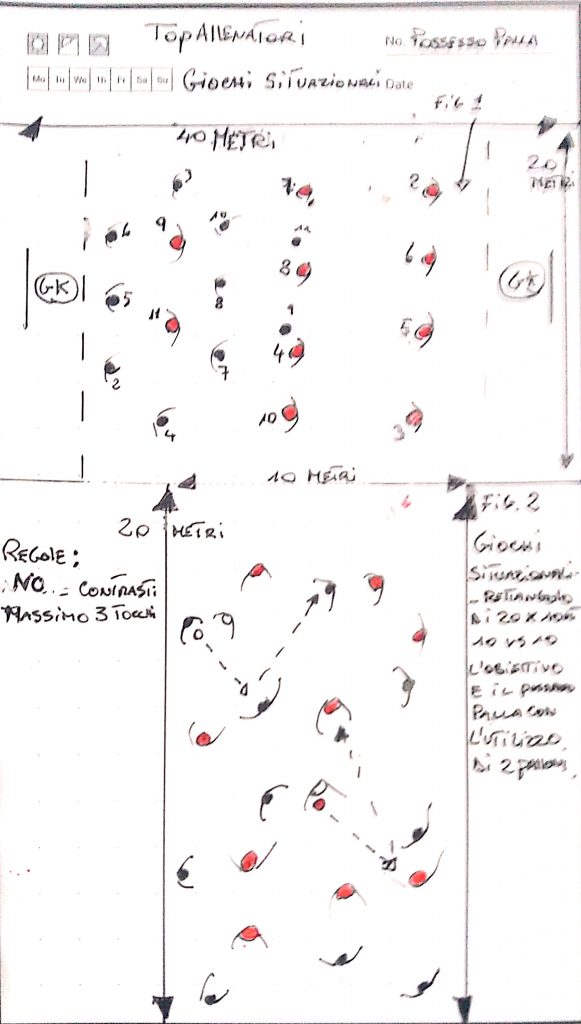 TopAllenatori
No. Possesso Palla
Mo Tu We Th Fr Sa Su
Giochi Situazionali Date
Fig 1
40 Metri
20 Metri
3
7
2
6
9
10
11
6
8
GK
GK
5
8
11
9
5
4
7
2
10
3
4
10 Metri
20 Metri
Fig. 2
Regole:
NO - Contrasti
Massimo 3 Tocchi
Giochi
Situazionali-
- Rettangolo
di 20 x 10
10 vs 10
L'obiettivo
e il possesso
palla con
l'utilizzo
di 2 palloni